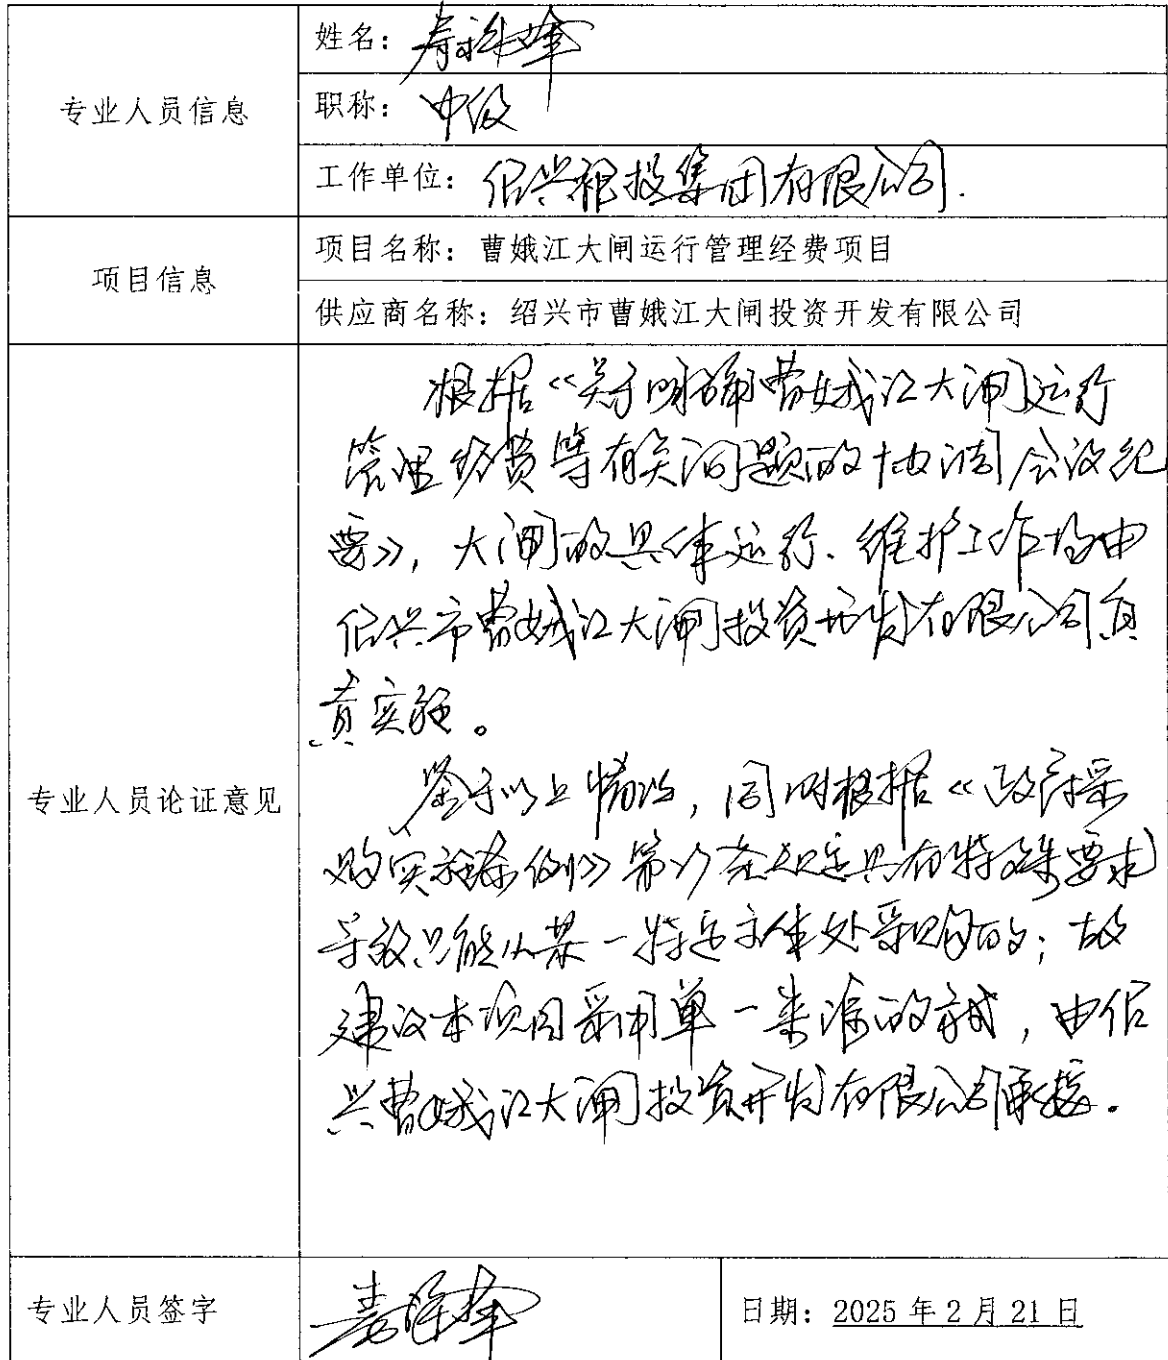 专业人员信息
姓名：寿
职称：中级
工作单位：绍兴 投集团有限公司.
项目信息
项目名称：曹娥江大闸运行管理经费项目
供应商名称：绍兴市曹娥江大闸投资开发有限公司
专业人员论证意见
根据《关于明确曹娥江大闸运行
管理经费等有关问题的协调会议纪
要》，大闸的具体运行、维护工作均由
绍兴市曹娥江大闸投资开发有限公司负
责实施。
鉴于以上情况，同时根据《政府采
购实施条例》第27条规定具有特殊要求
导致只能从某一特定主体处采购的；故
建议本项目采用单一来源的方式，由绍
兴曹娥江大闸投资开发有限公司承接。
专业人员签字
日期：2025年2月21日